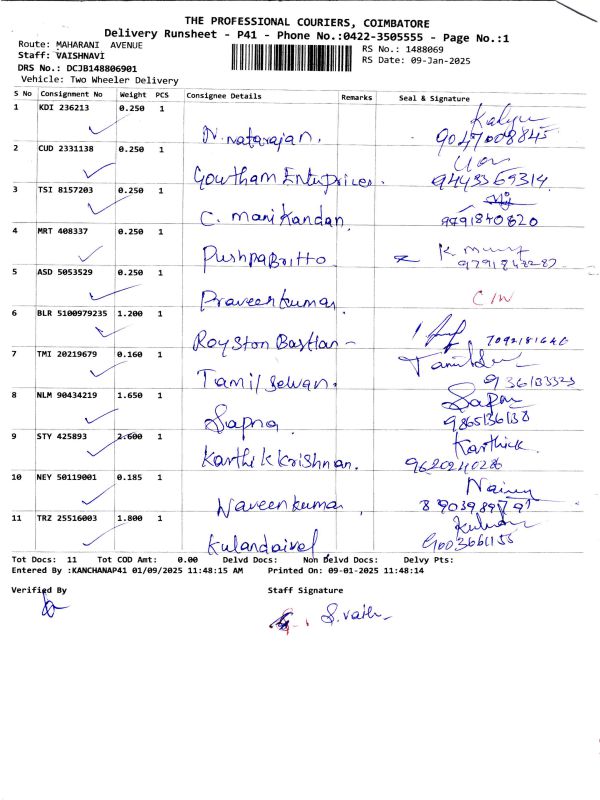 THE PROFESSIONAL COURIERS, COIMBATORE
Delivery Runsheet - P41 - Phone No.:0422-3505555 - Page No.:1
Route: MAHARANI AVENUE
RS No.: 1488069
Staff: VAISHNAVI
RS Date: 09-Jan-2025
DRS No.: DCJB148806901
Vehicle: Two Wheeler Delivery
S No Consignment No Weight PCS Consignee Details Remarks Seal & Signature
1 KDI 236213 0.250 1
N. natarajan. 9047008845
2 CUD 2331138 0.250 1
Gowtham Enterprices.
3 TSI 8157203 0.250 1
C. Manikandan 9791840820
4 MRT 408337 0.250 1
Pushpa Britto
5 ASD 5053529 0.250 1
Praveen kumar C/W
6 BLR 5100979235 1.200 1
Royston Bastian -
7 TMI 20219679 0.160 1
Tamil selvan.
8 NLM 90434219 1.650 1
Sapna 9865136138
9 STY 425893 2.600 1 Karthick
Karthikkrishnan. 9620240286
10 NEY 50119001 0.185 1
Naveen kumar
11 TRZ 25516003 1.800 1
Kulandaivel 9003661155
Tot Docs: 11 Tot COD Amt: 0.00 Delvd Docs: Non Delvd Docs: Delvy Pts:
Entered By :KANCHANAP41 01/09/2025 11:48:15 AM Printed On: 09-01-2025 11:48:14
Verified By Staff Signature